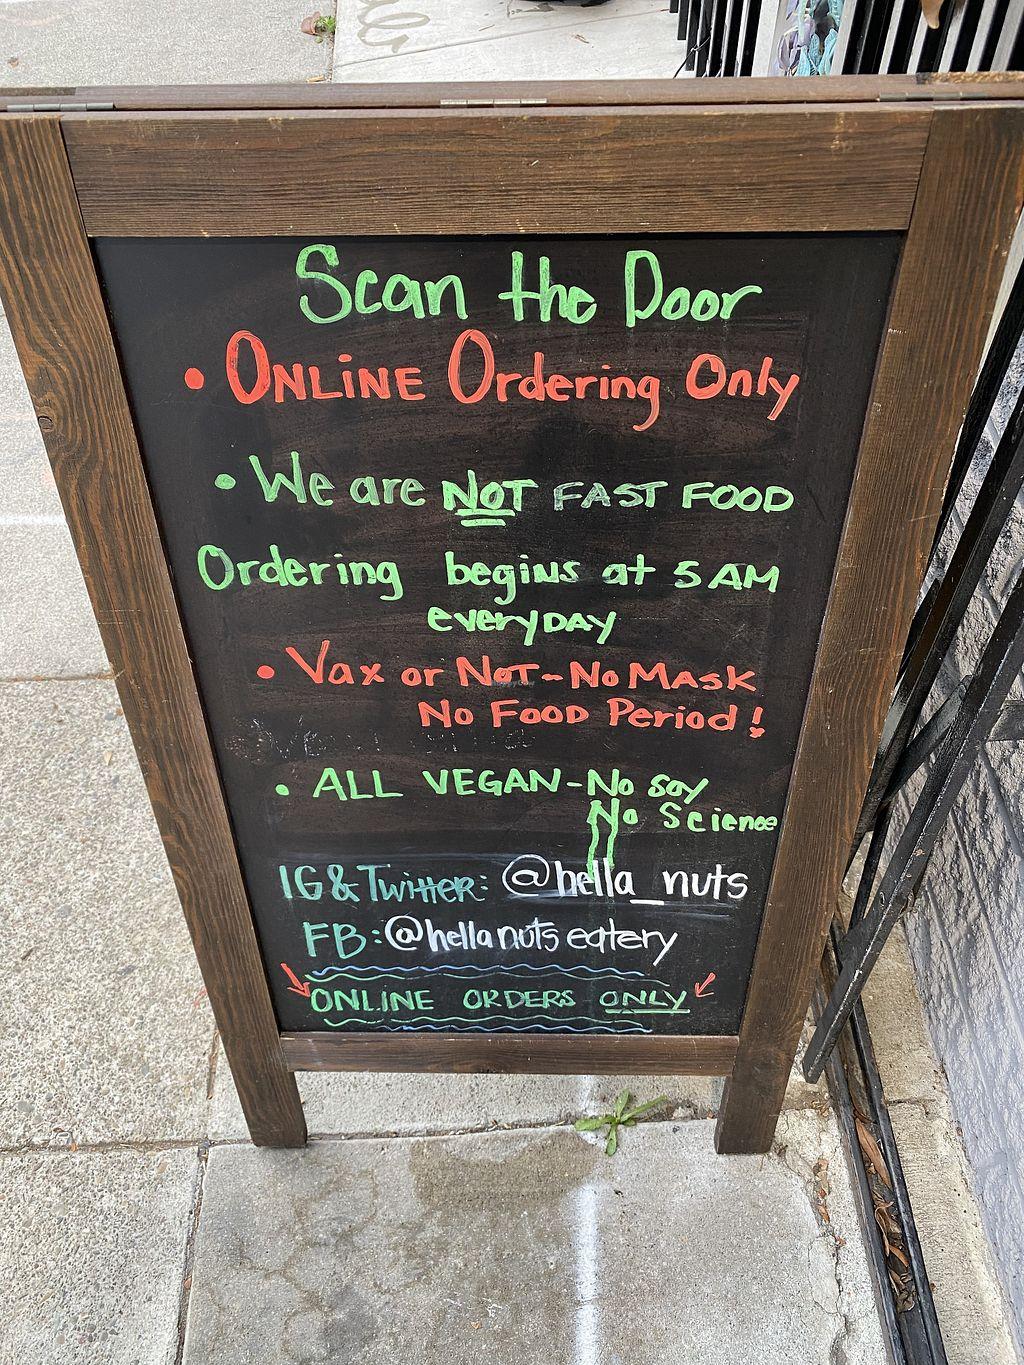 Scan the Door
• ONLINE Ordering Only
• We are NOT FAST FOOD
Ordering begins at 5 AM
everyDAY
• Vax or NOT - No MASK
No FOOD Period!
• ALL VEGAN - No soy
No Science
IG & Twitter: @hella_nuts
FB: @hellanuts eatery
ONLINE ORDERS ONLY